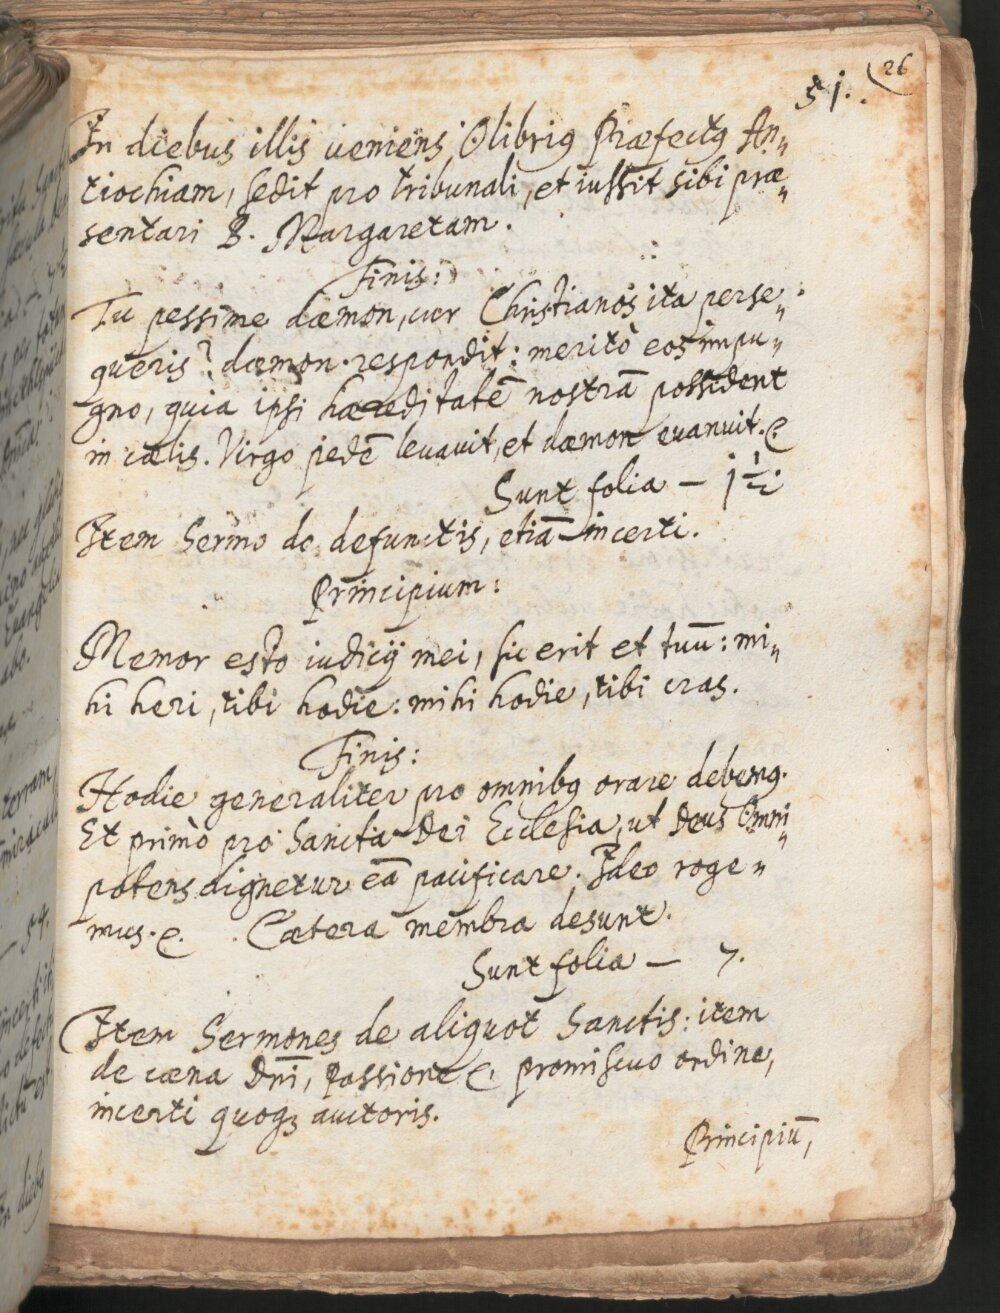 26
51.
In diebus illis ueniens Olibriꝰ Præfectꝰ An„
tiochiam, sedit pro tribunali, et iussit sibi præ„
sentari B. Margaretam.
Finis:
Tu pessime dæmon, cur Christianos ita perse„
queris? dæmon respondit: meritò eos impu„
gno, quia ipsi hæreditatē nostrā possident
in cœlis. Virgo pedē leuauit, et dæmon euanuit. &.
Sunt folia — 1½
Item Sermo de defunctis, etiā incerti.
Principium:
Memor esto iudicij mei, sic erit et tuū: mi„
hi heri, tibi hodie: mihi hodie, tibi cras.
Finis:
Hodie generaliter pro omnibꝰ orare debemꝰ.
Et primò pro Sancta Dei Ecclesia, ut Deus Omni„
potens dignetur eā pacificare. Ideo roge„
mus. &. Cætera membra desunt.
Sunt folia — 7.
Item Sermones de aliquot Sanctis: item
de cæna Dnī, Passione &. promiscuo ordine,
incerti quoqꝫ auctoris.
Principiū,